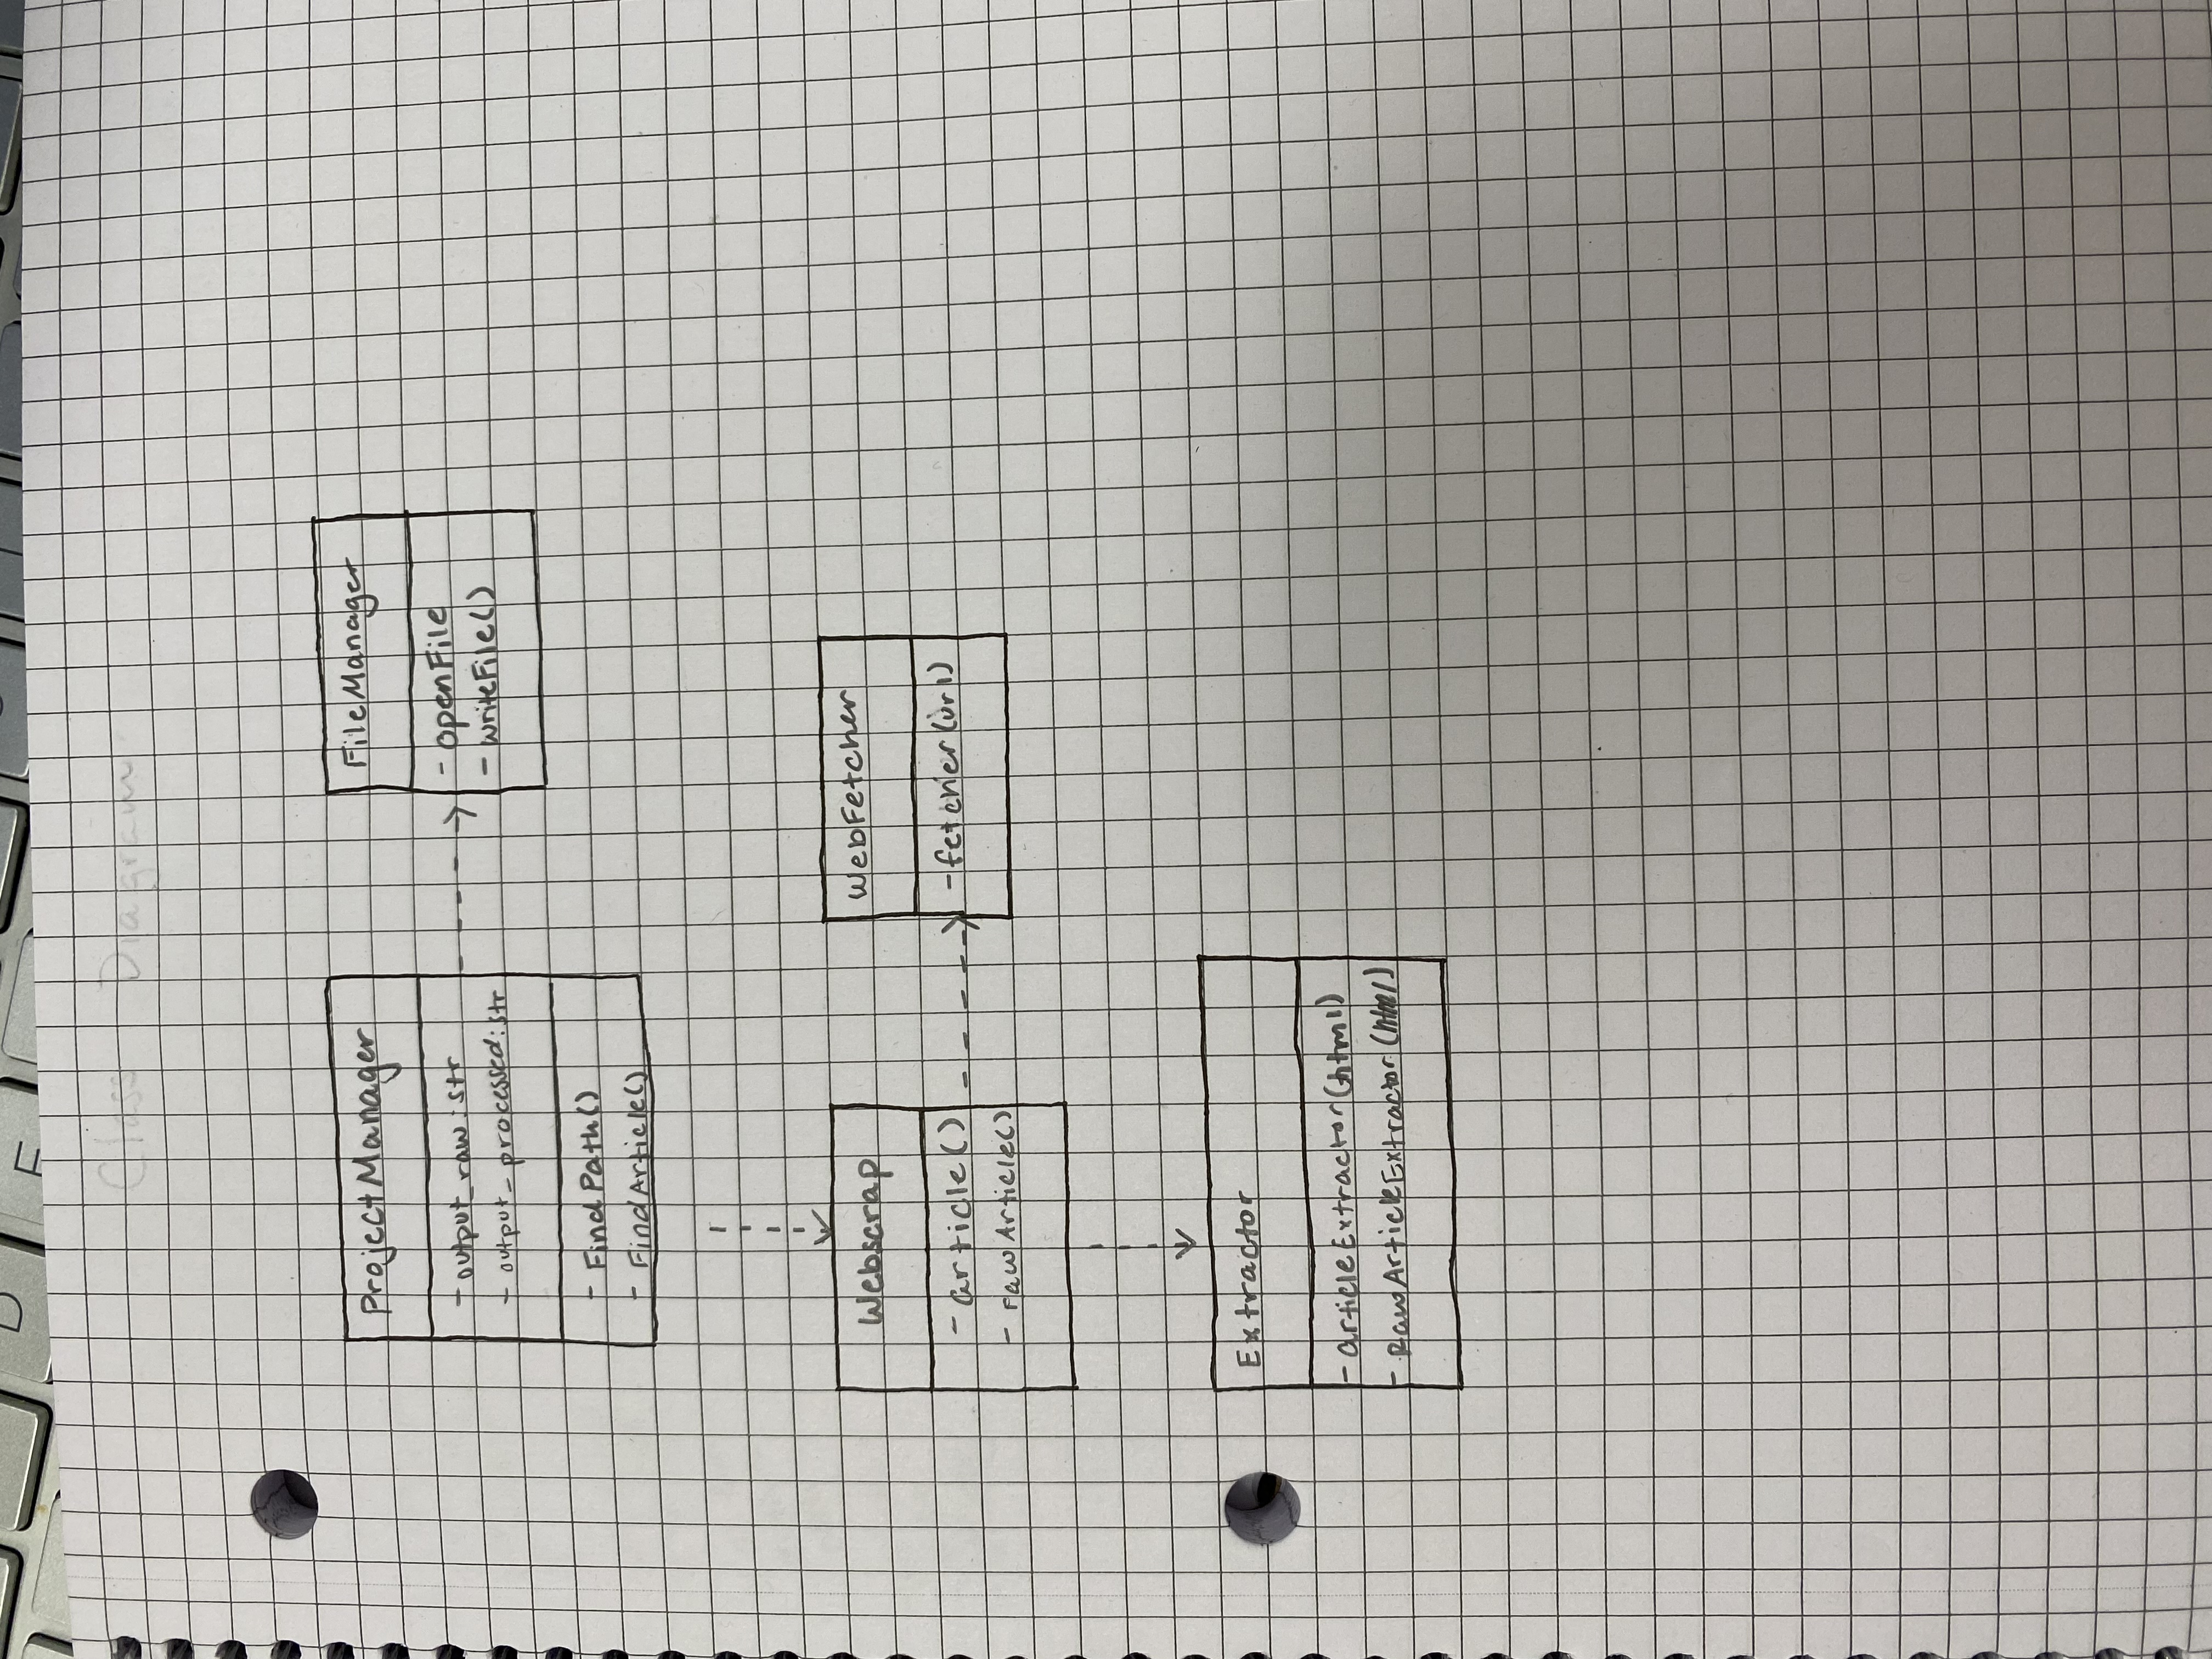 D
F
Class Diagram
ProjectManager
- output_raw:str
- output_processed:str
- FindPath()
- FindArticle()
FileManager
- openFile
- writeFile()
Webscrap
- article()
- rawArticle()
WebFetcher
- fetcher(url)
Extractor
- articleExtractor(html)
- RawArticleExtractor(html)